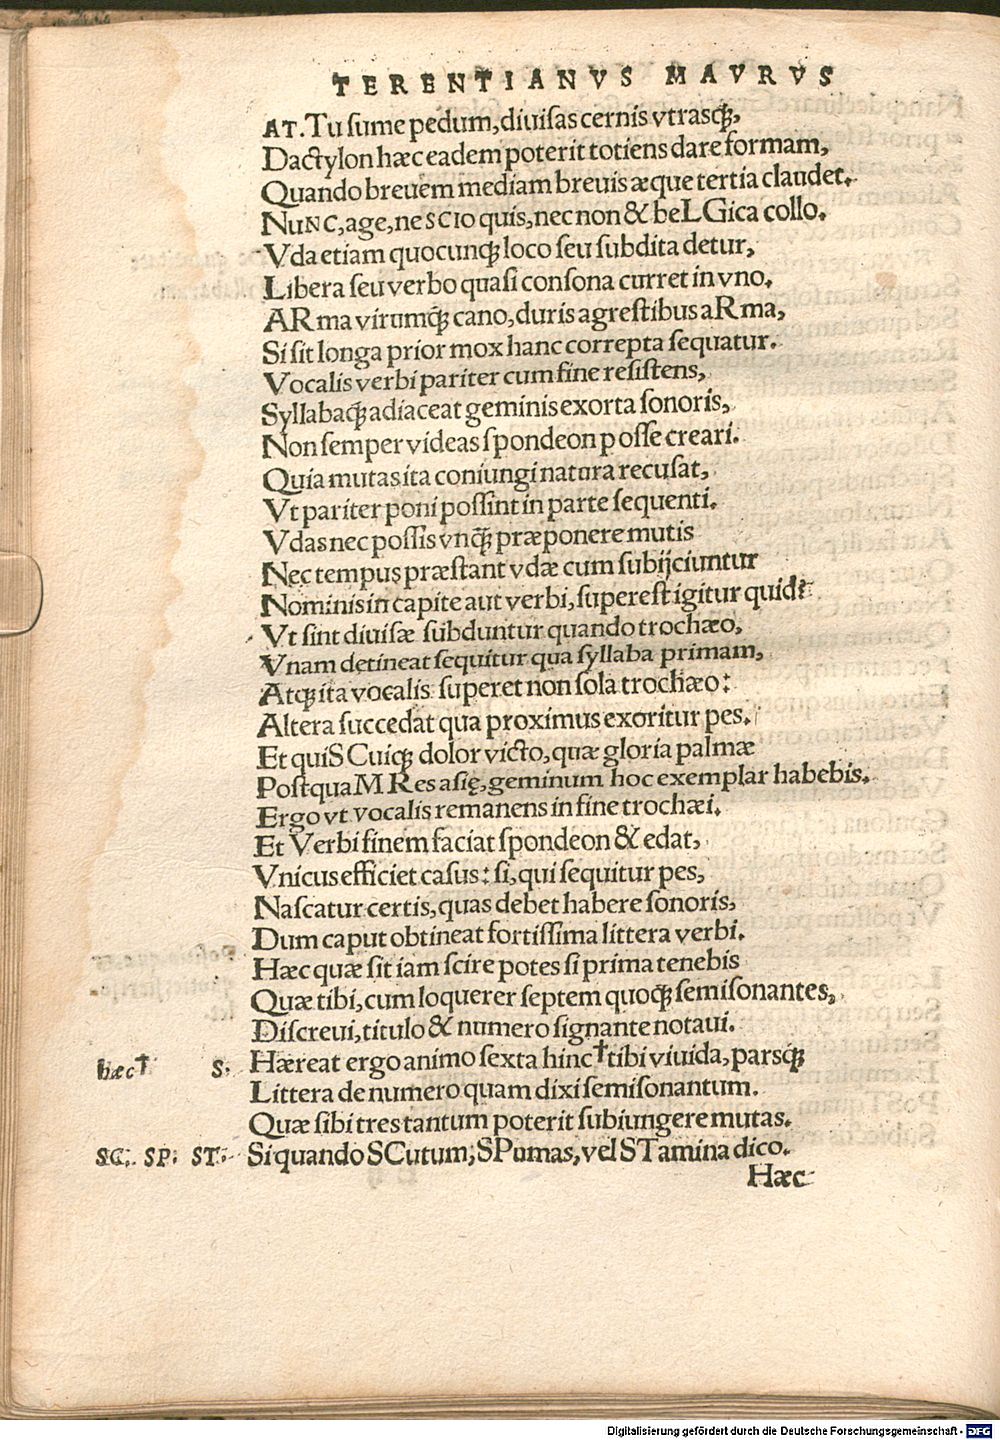 TERENTIANVS MAVRVS
AT. Tu ſume pedum, diuiſas cernis vtraſq́;,
Dactylon hæc eadem poterit totiens dare formam,
Quando breuem mediam breuis æque tertia claudet.
NuNC, age, neSCIO quis, nec non & beLGica collo.
Vda etiam quocunq́; loco ſeu ſubdita detur,
Libera ſeu verbo quaſi conſona curret in vno.
ARma virumq́; cano, duris agreſtibus aRma,
Si ſit longa prior mox hanc correpta ſequatur.
Vocalis verbi pariter cum fine reſiſtens,
Syllabaq́; adiaceat geminis exorta ſonoris,
Non ſemper videas ſpondeon poſſe creari.
Quia mutas ita coniungi natura recuſat,
Vt pariter poni poſſint in parte ſequenti.
Vdas nec poſſis vnq́; præponere mutis
Nec tempus præſtant vdæ cum ſubijciuntur
Nominis in capite aut verbi, ſupereſt igitur quid?
Vt ſint diuiſæ ſubduntur quando trochæo,
Vnam detineat ſequitur qua ſyllaba primam,
Atq́; ita vocalis ſuperet non ſola trochæo:
Altera ſuccedat qua proximus exoritur pes.
Et quiSCuiq́; dolor victo, quæ gloria palmæ
PoſtquaM Res aſię, geminum hoc exemplar habebis.
Ergo vt vocalis remanens in fine trochæi.
Et Verbi finem faciat ſpondeon & edat,
Vnicus efficiet caſus: ſi, qui ſequitur pes,
Naſcatur certis, quas debet habere ſonoris,
Dum caput obtineat fortiſſima littera verbi.
Hæc quæ ſit iam ſcire potes ſi prima tenebis
Quæ tibi, cum loquerer ſeptem quoq́; ſemiſonantes,
Diſcreui, titulo & numero ſignante notaui.
hæc† S. Hæreat ergo animo ſexta hinc† tibi viuida, parsq́;
Littera de numero quam dixi ſemiſonantum.
Quæ ſibi tres tantum poterit ſubiungere mutas.
SC. SP. ST. Si quando SCutum, SPumas, vel STamina dico.
Hæc
Digitalisierung gefördert durch die Deutsche Forschungsgemeinschaft - DFG